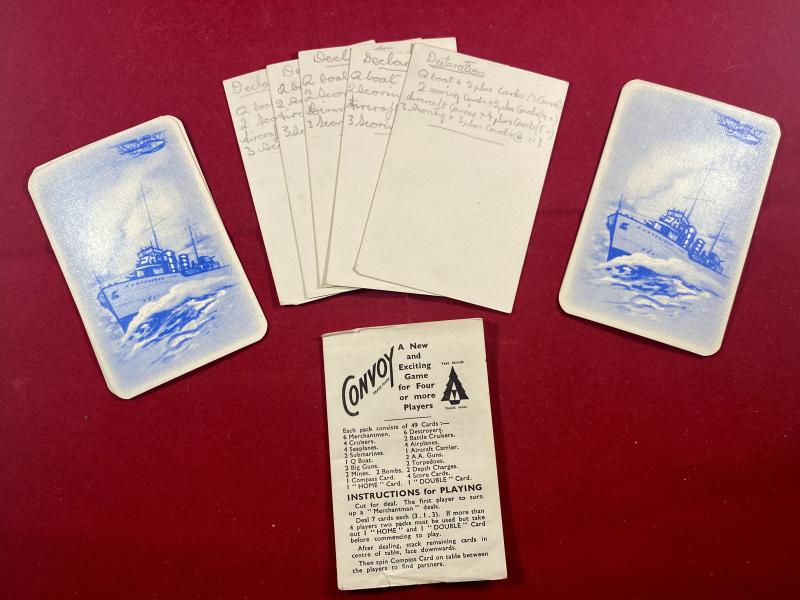 Decla
Q boa
2 Sco
Aircra
3 Sc
Decla
Q boat
2 Sc
3 Sc
Decl
Q boat
2 Scor
3 Scor
Declar
Q boat
2 Scorin
Aircraft
3 Scorin
Declarations
Q boat + 2 plus Cards (3 Cards)
2 scoring Cards + 2 plus Cards (4 " )
Aircraft Carrier + 4 plus Cards (5 " )
3 Scoring + 3 plus Cards (6 " )
CONVOY
TRADE MARK
A New
and
Exciting
Game
for Four
or more
Players
TREE BRAND
TRADE MARK
Each pack consists of 49 Cards :—
6 Merchantmen. 6 Destroyers.
4 Cruisers. 2 Battle Cruisers.
4 Seaplanes. 4 Airplanes.
2 Submarines. 1 Aircraft Carrier.
1 Q Boat. 2 A.A. Guns.
2 Big Guns. 2 Torpedoes.
2 Mines. 2 Bombs. 2 Depth Charges.
1 Compass Card. 4 Score Cards.
1 "HOME" Card. 1 "DOUBLE" Card.
INSTRUCTIONS for PLAYING
Cut for deal. The first player to turn
up a "Merchantman" deals.
Deal 7 cards each (3, 1, 3). If more than
4 players two packs must be used but take
out 1 "HOME" and 1 "DOUBLE" Card
before commencing to play.
After dealing, stack remaining cards in
centre of table, face downwards.
Then spin Compass Card on table between
the players to find partners.